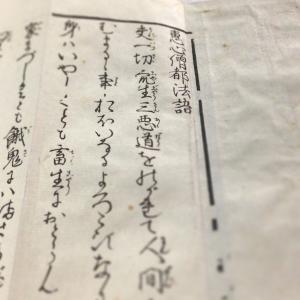 惠心僧都法語
夫一切衆生三悪道をのがれて人間
むまるゝ事大いなるよろこびなり
身ハいやしくとも畜生におとらん
家まづしくとも餓鬼にハまさる